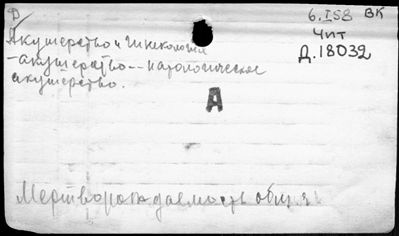 6.IS8 ВК
Акушерство и гинекология
Чит
Д.18032
-акушерство--патологическое
акушерство.
А
Мертворождаемость общая